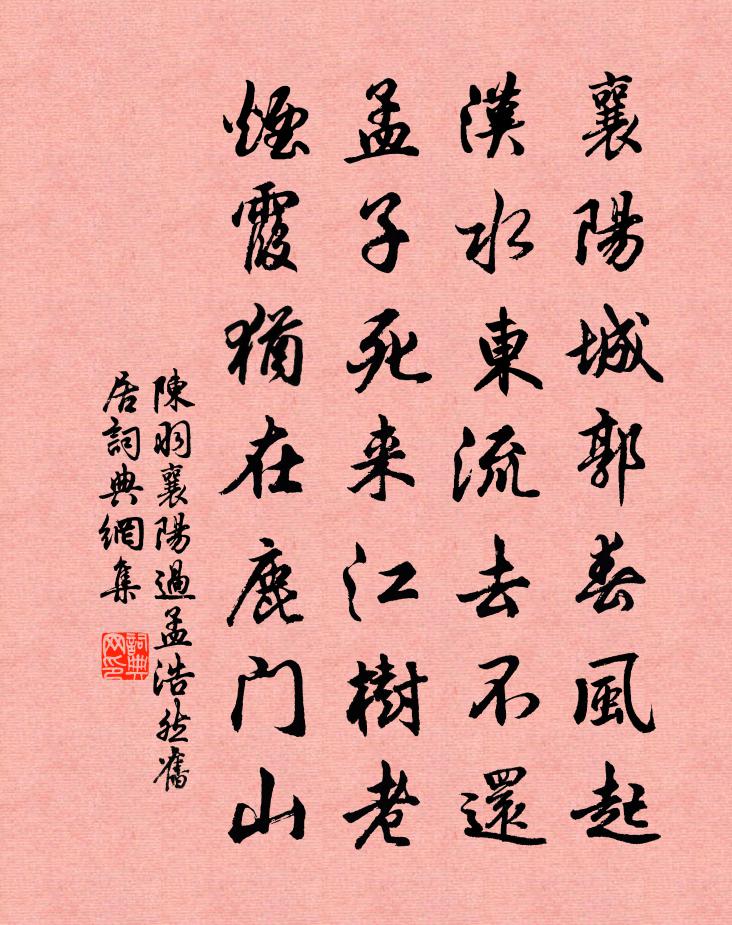 襄陽城郭春風起
漢水東流去不還
孟子死来江樹老
煙霞猶在鹿門山
陳羽襄陽過孟浩然舊
居詞典網集
詞典网印